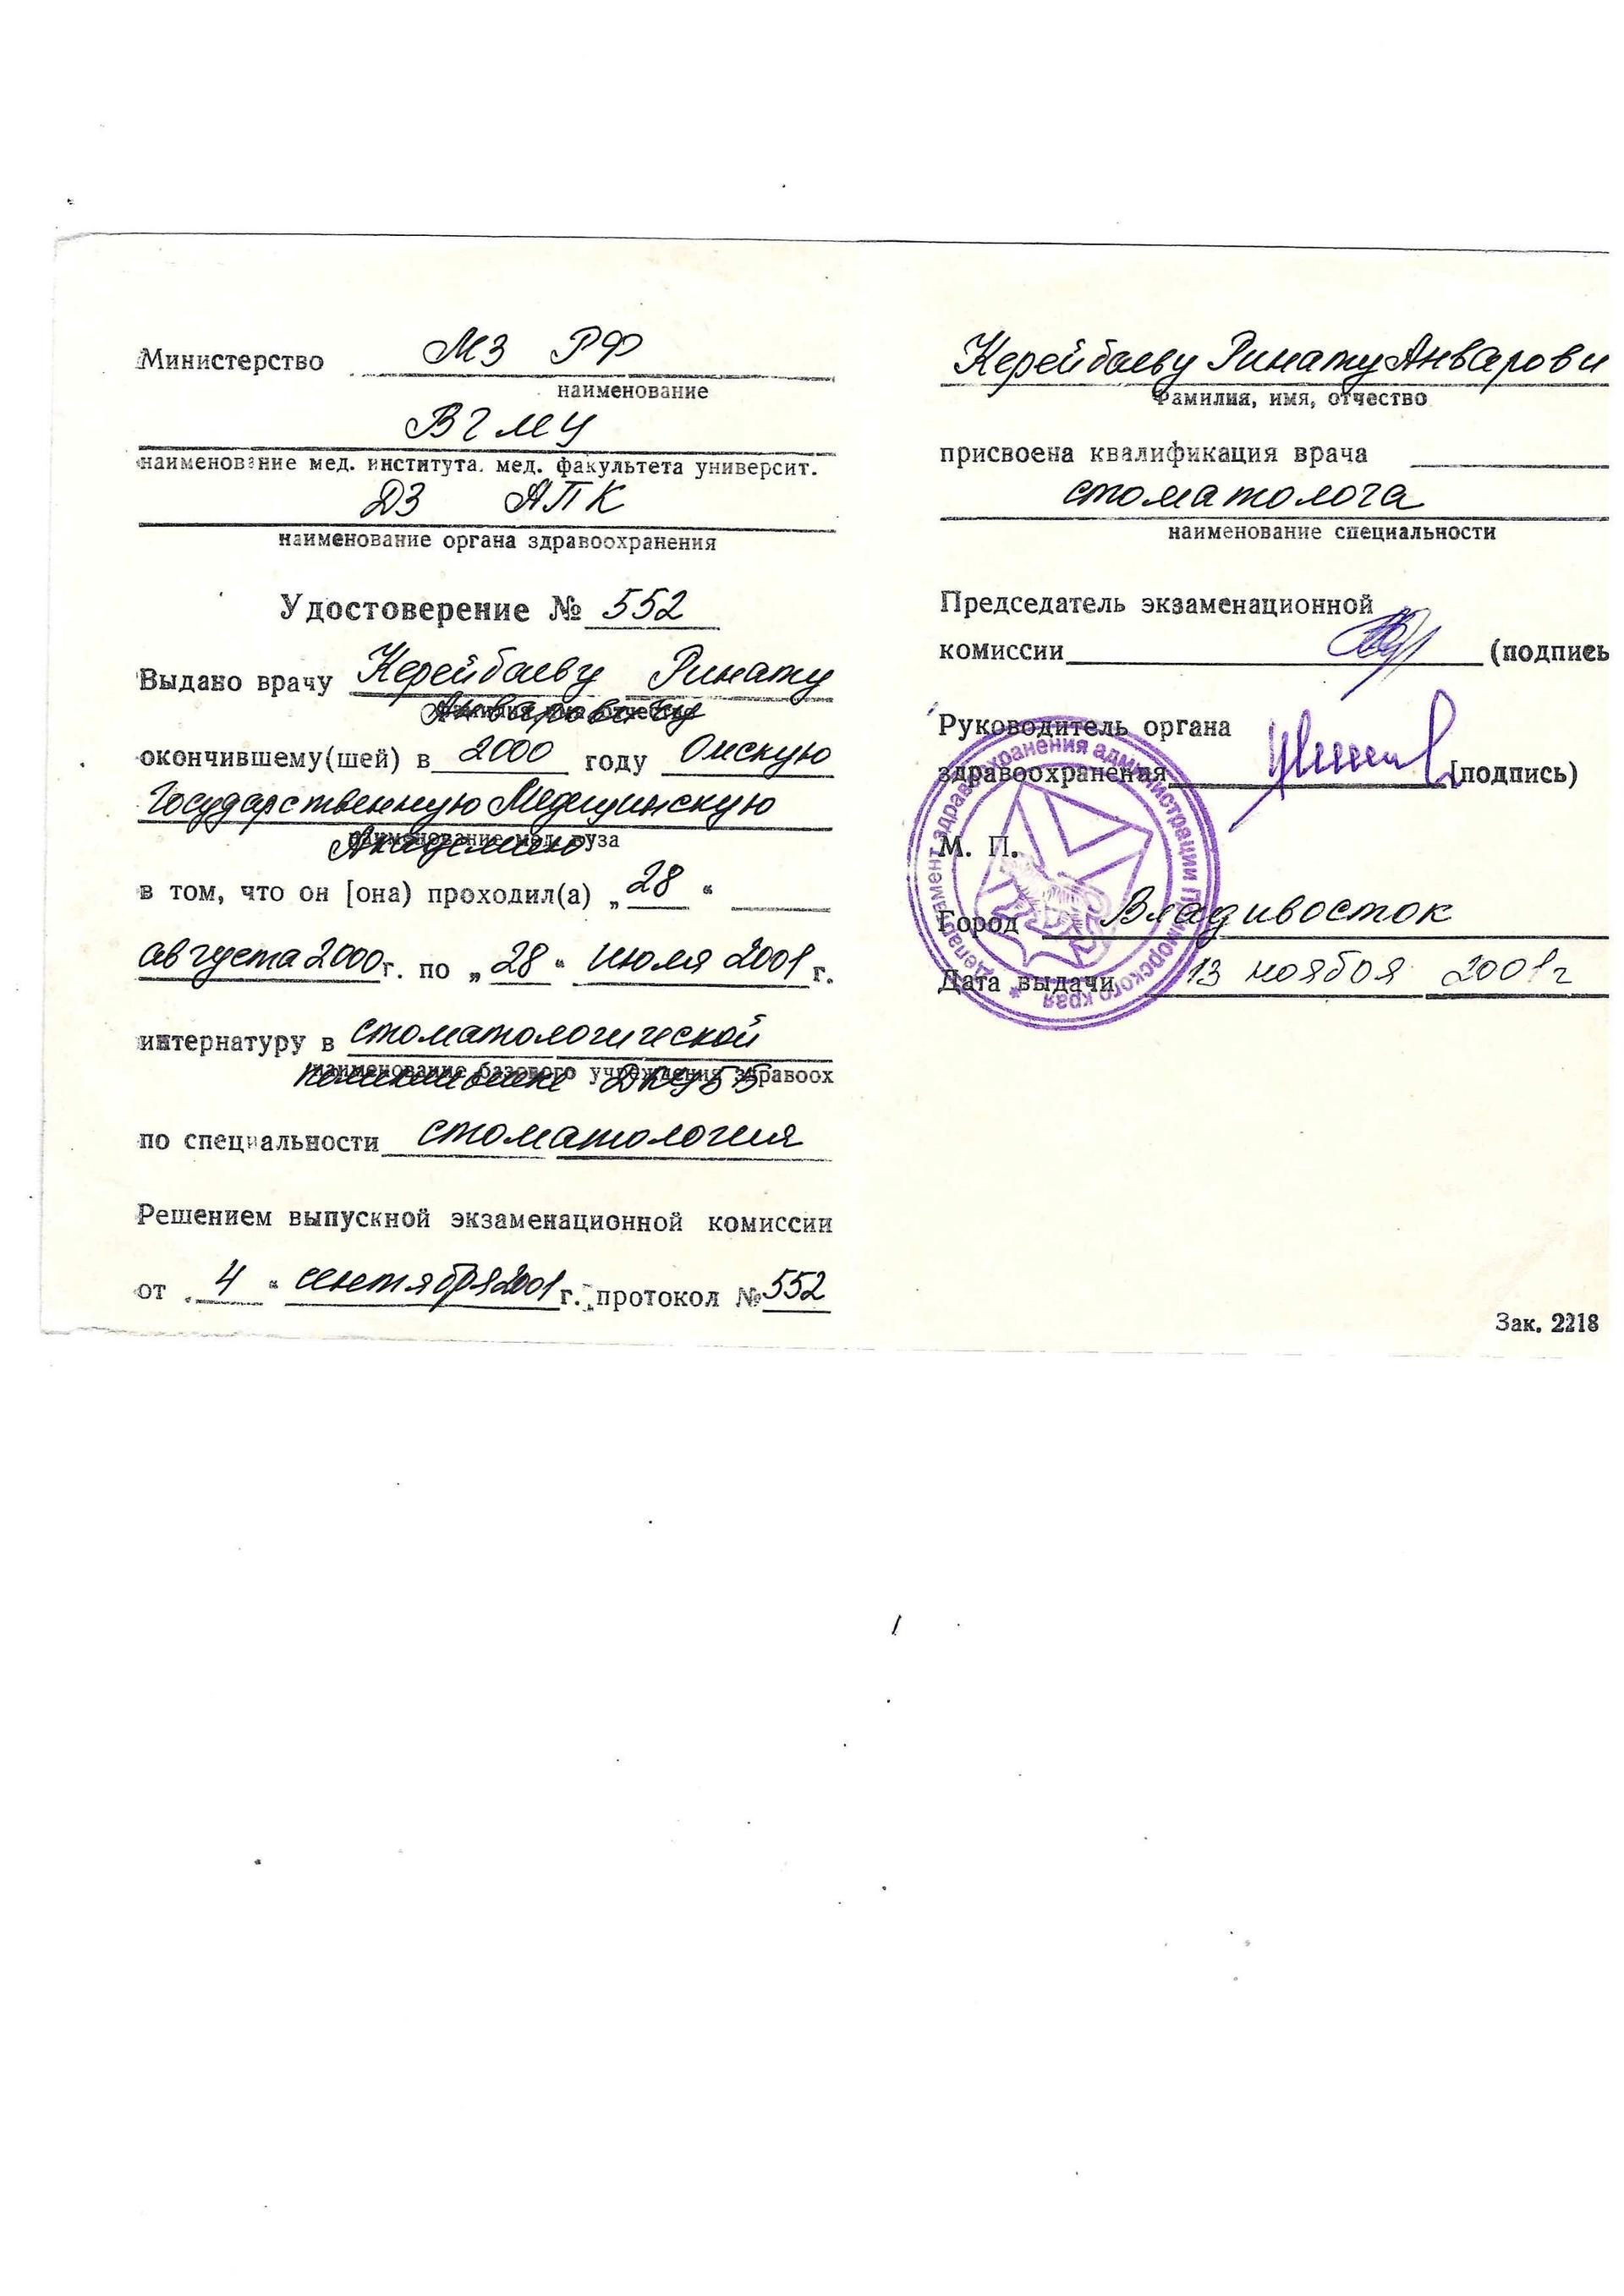 Министерство МЗ РФ
наименование
ВГМУ
наименование мед. института. мед. факультета университ.
ДЗ АПК
наименование органа здравоохранения
Удостоверение № 552
Выдано врачу Керейбаеву Ринату
Анваровичу
окончившему(шей) в 2000 году Омскую
Государственную Медицинскую
наименование мед. вуза
Академию
в том, что он [она) проходил(а) „28“
августа 2000 г. по „28“ июля 2001 г.
интернатуру в стоматологической
наименование базового учреждения здравоох
поликлинике
по специальности стоматология
Решением выпускной экзаменационной комиссии
от 4 “ сентября 2001 г. протокол № 552
Керейбаеву Ринату Анварови
Фамилия, имя, отчество
присвоена квалификация врача
стоматолога
наименование специальности
Председатель экзаменационной
комиссии (подпись
Руководитель органа
здравоохранения [подпись)
М. П.
Департамент здравоохранения администрации Приморского края *
Город Владивосток
Дата выдачи 13 ноября 2001 г
Зак. 2218